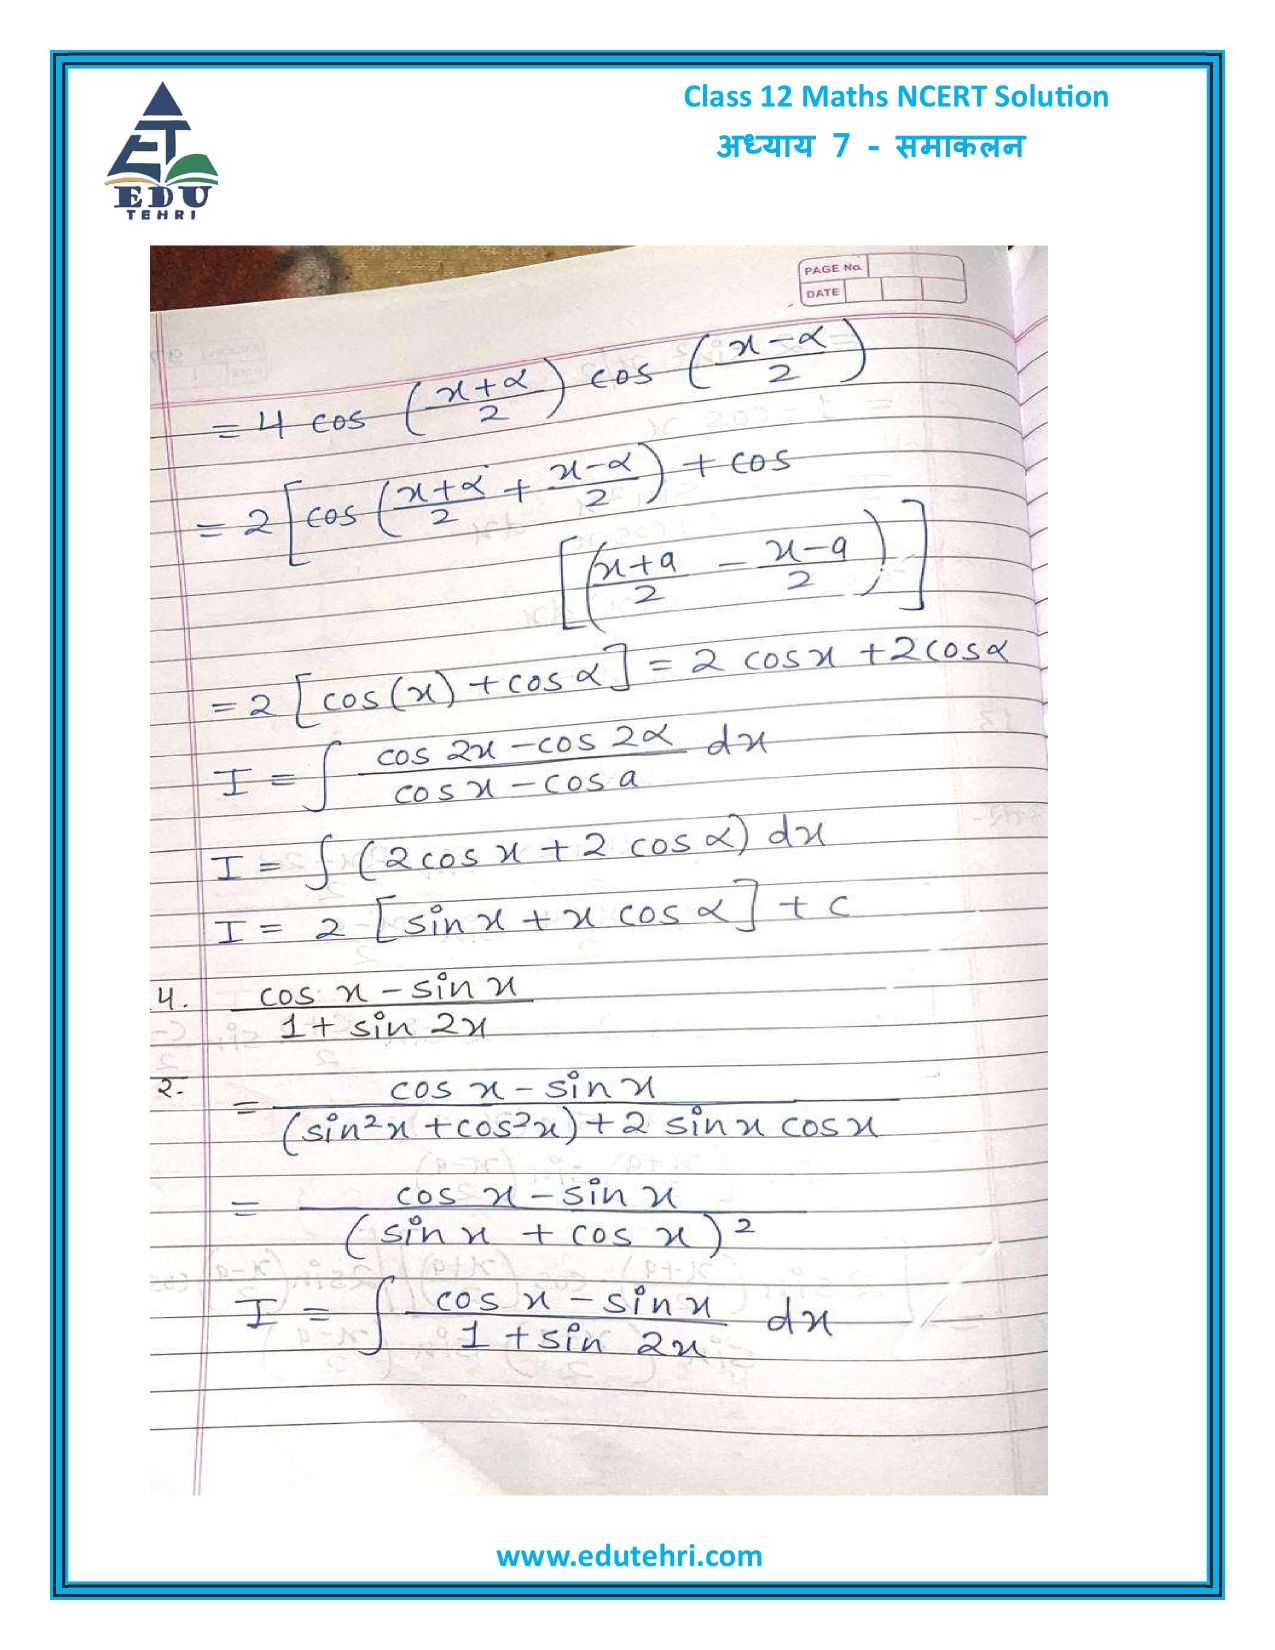 Class 12 Maths NCERT Solution
अध्याय 7 - समाकलन
EDU
TEHRI
PAGE No.
DATE
= 4 cos ((x+α)/2) cos ((x-α)/2)
= 2 [cos ((x+α)/2 + (x-α)/2) + cos
[((x+a)/2 - (x-a)/2)]
= 2 [cos(x) + cos α] = 2 cosx + 2cosα
I = ∫ (cos 2x - cos 2α)/(cos x - cos a) dx
I = ∫ (2cos x + 2 cos α) dx
I = 2 [sin x + x cos α] + c
4. (cos x - sin x)/(1 + sin 2x)
२. = (cos x - sin x)/((sin²x + cos²x) + 2 sin x cos x)
= (cos x - sin x)/(sin x + cos x)²
I = ∫ (cos x - sin x)/(1 + sin 2x) dx
www.edutehri.com